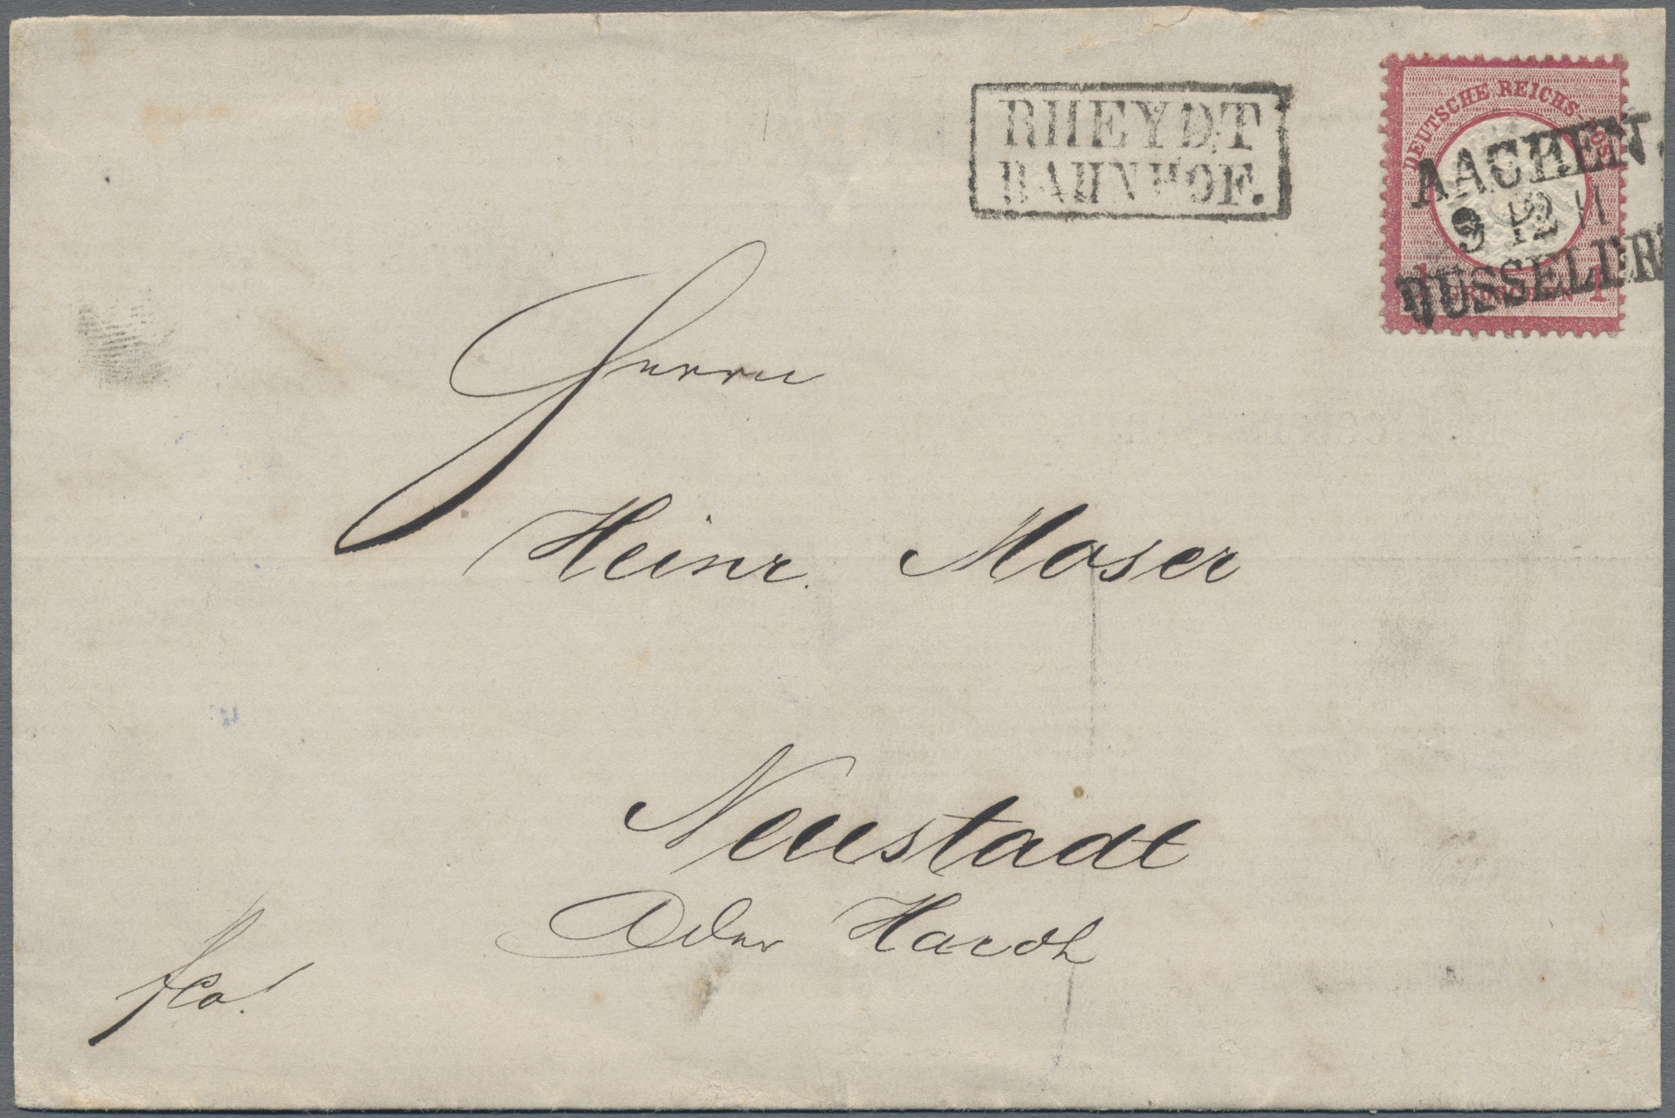 RHEYDT
BAHNHOF.
DEUTSCHE REICHS POST
AACHEN.
9 12 II
DUSSELDR
1 GROSCHEN 1
Herrn
Heinr. Moser
Neustadt
a der Hardt
fco.